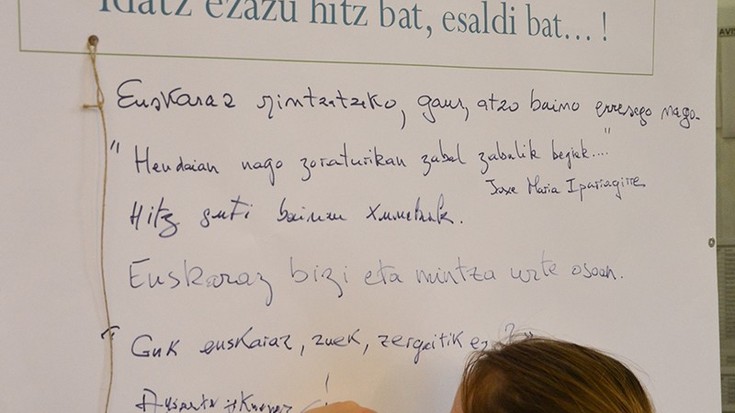 Idatz ezazu hitz bat, esaldi bat... !
Euskaraz mintzatzeko, gaur, atzo baino errexego nago.
"Hendaian nago zoraturikan zabal zabalik begiak...."
Jose Maria Iparragirre
Hitz guti bainan xumetarik.
Euskaraz bizi eta mintza urte osoan.
"Guk euskaraz, zuek, zergaitik ez